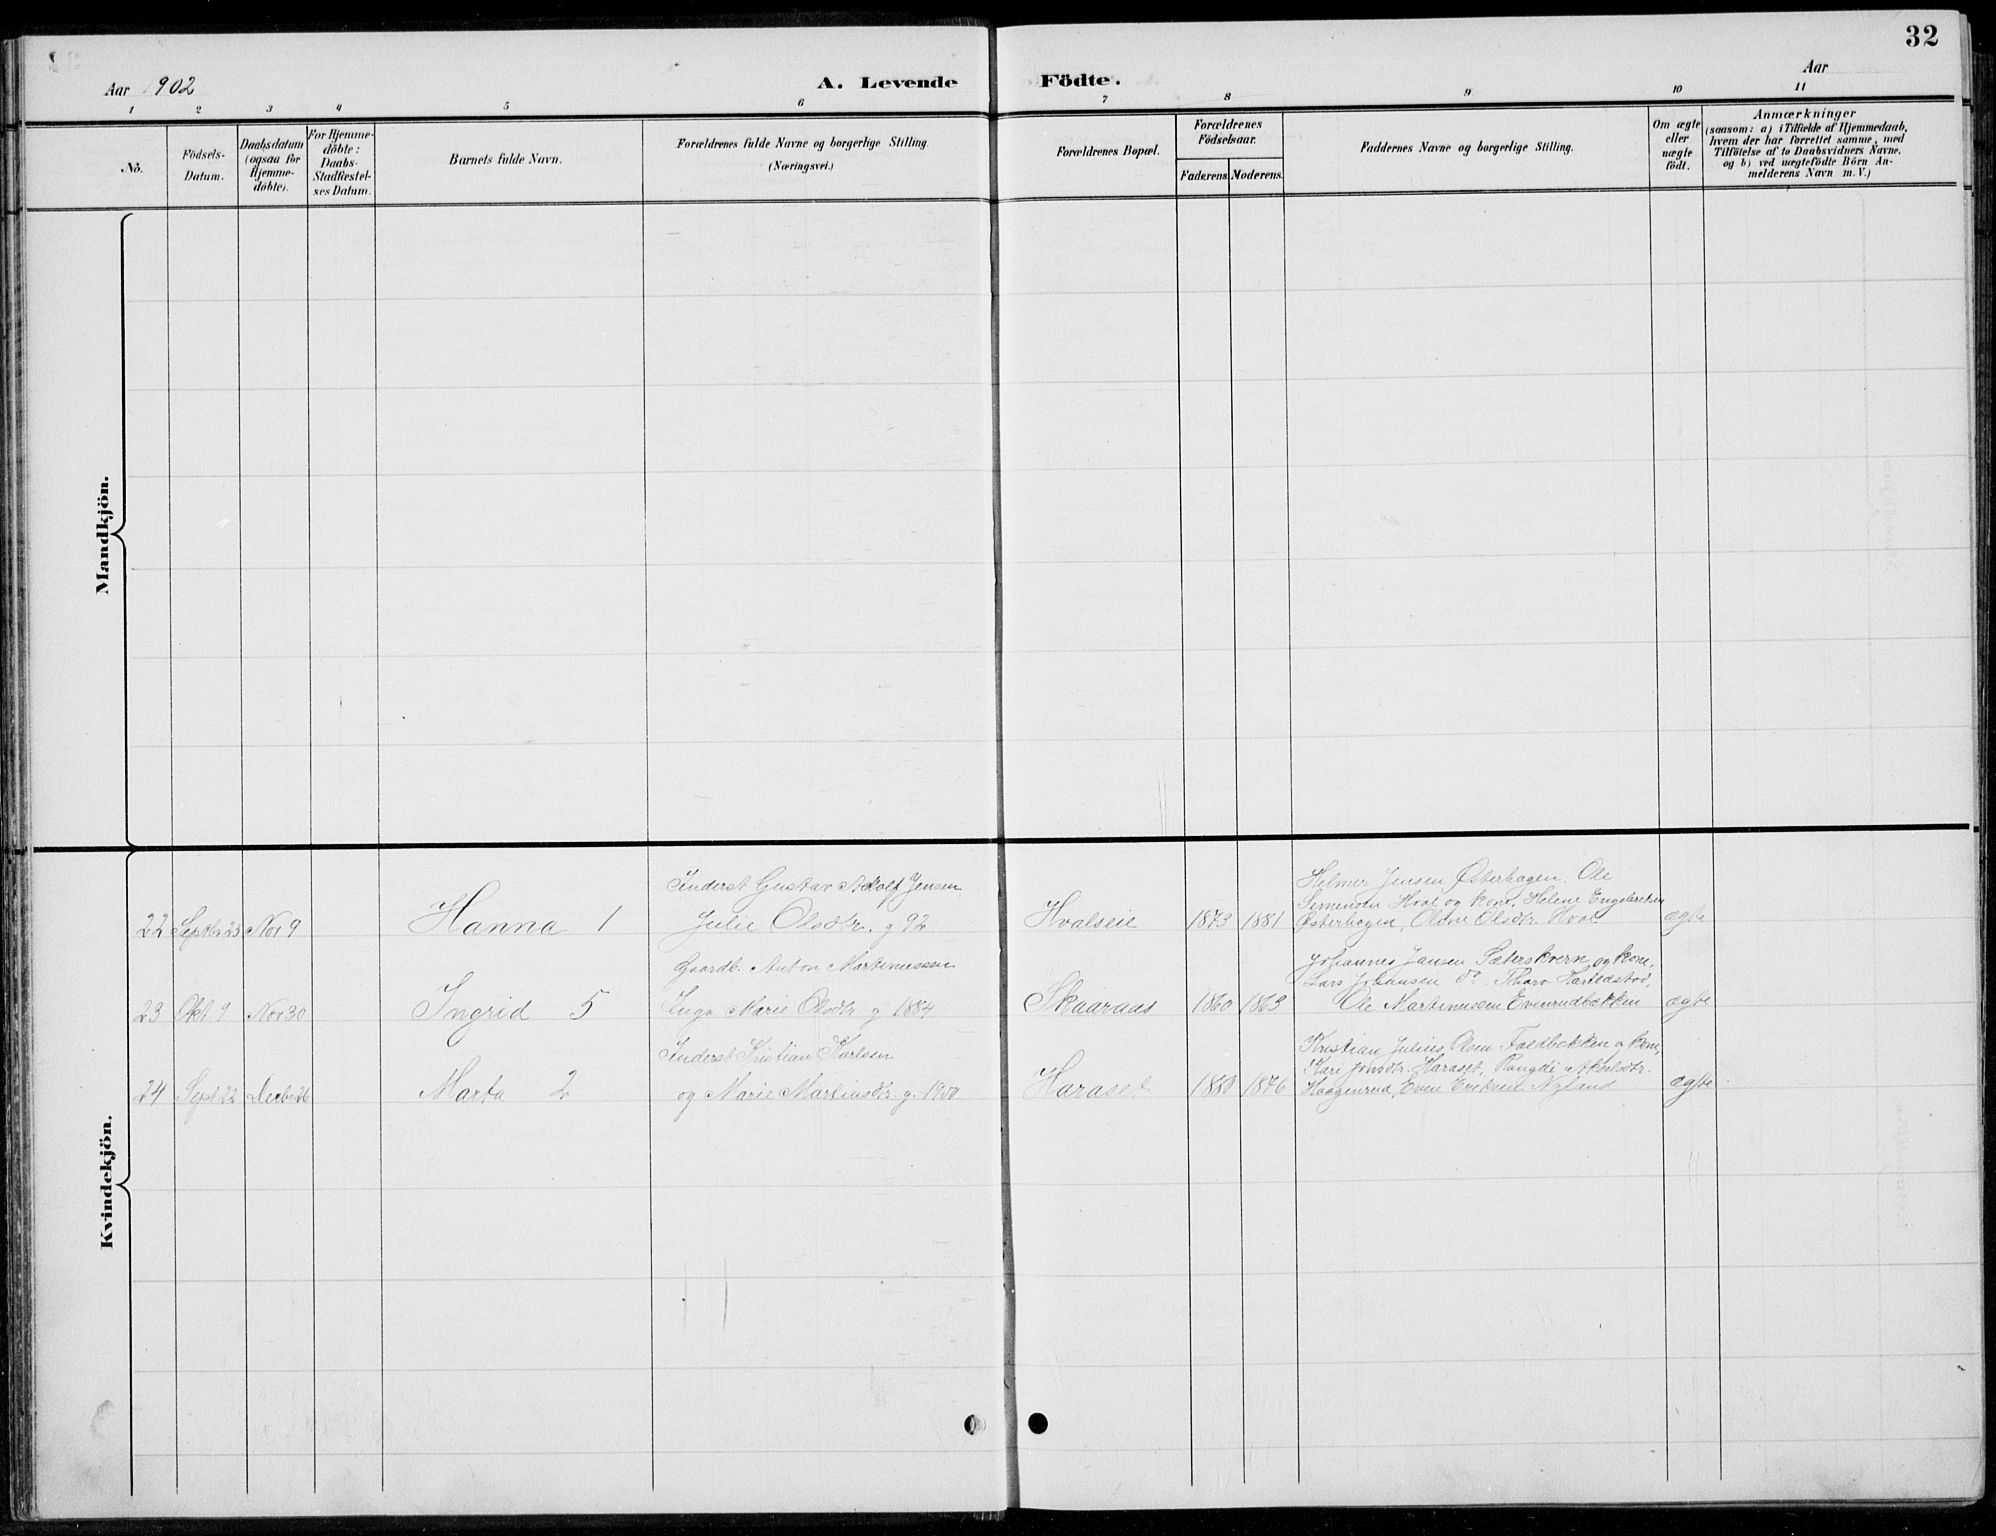 32
Aar 1902
A. Levende Födte.
Aar
1 2 3 4 5 6 7 8 9 10 11
No.
Födsels-Datum.
Daabsdatum (ogsaa for Hjemme-döbte).
For Hjemme-döbte: Daabs-Stadfæstel-ses Datum.
Barnets fulde Navn.
Forældrenes fulde Navne og borgerlige Stilling. (Næringsvei.)
Forældrenes Bopæl.
Forældrenes Födselsaar.
Faderens. Moderens.
Faddernes Navne og borgerlige Stilling.
Om ægte eller uægte født.
Anmærkninger
(saasom: a) i Tilfælde af Hjemmedaab,
hvem der har forrettet samme, med
Tilföielse af to Daabsvidners Navne.
og b) ved uægtefödte Börn An-
melderens Navn m. V.)
Mandkjön.
Kvindekjön.
Inderst Gustav Adolf Jensen
Helmer Jensen Østerhagen. Ole
Simensen Hval og kone, Helene Engebretsen
22 Septbr 23 Nov 9 Hanna 1 Julie Olsdtr. g 92 Hvalseie 1873 1881 Østerhagen, Oline Olsdtr. Hval ægte
Gaardb. Anton Martinussen
Johannes Jansen Sæterskvern og kone,
Lars Johansen do. Thora
23 Okt 9 Nov 30 Ingrid 5 Inga Marie Olsdtr g 1884 Skaaraas 1860 1863 Ole Martinussen Evenrudbækken ægte
Inderst Kristian Karlsen
Kristian Julius Olsen Faldbækken og kone,
Kari Jonsdtr. Haraset,
24 Sept 22 Decbr 26 Marta 2 og Marie Martinsdtr g. 1900 Haraset 1880 1876 Haagenrud, Even Eriksen Nyland ægte